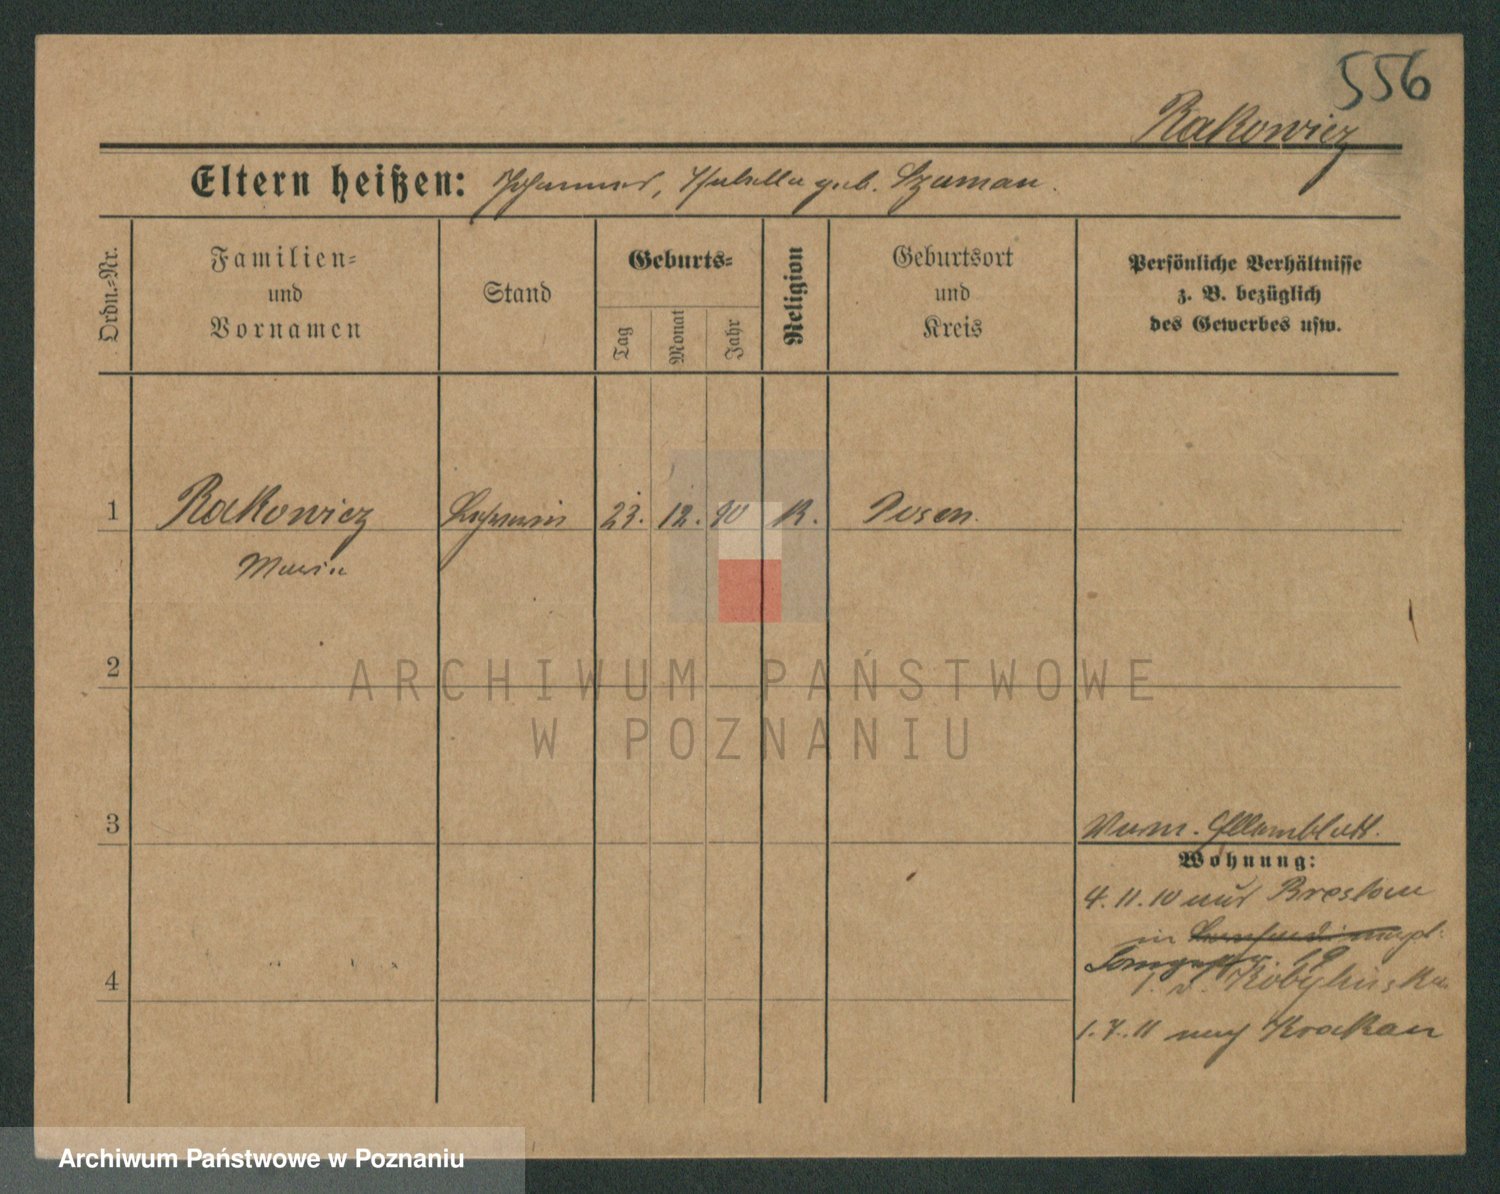 556
Rakowicz
Eltern heißen: Johannes, Isabella geb. Szuman.
Ordn.=Nr.
Familien=
und
Vornamen
Stand
Geburts=
Tag
Monat
Jahr
Religion
Geburtsort
und
Kreis
Persönliche Verhältnisse
z. B. bezüglich
des Gewerbes usw.
1 Rakowicz 23. 12. 90 K. Posen.
Maria
2
ARCHIWUM PAŃSTWOWE
W POZNANIU
3
Wohnung:
4. 11. 10 aus Breslau
in
v. Kobylinska
4
1. 7. 11 nach Krakau
Archiwum Państwowe w Poznaniu